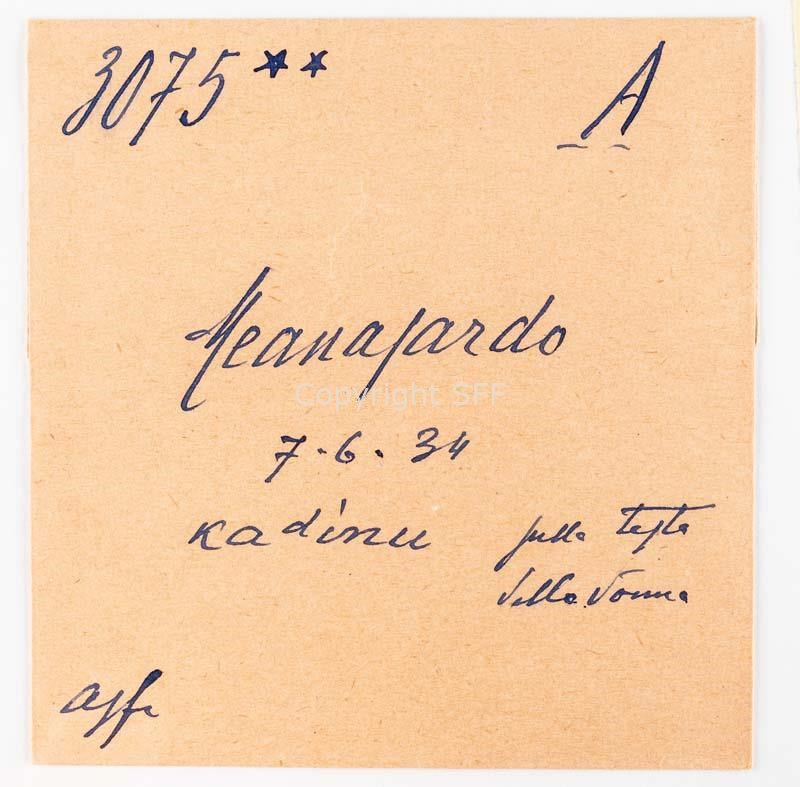 3075** A
Meanasardo
Copyright SFF
7-6.34
Kadinu sulla testa
della donna
agfa